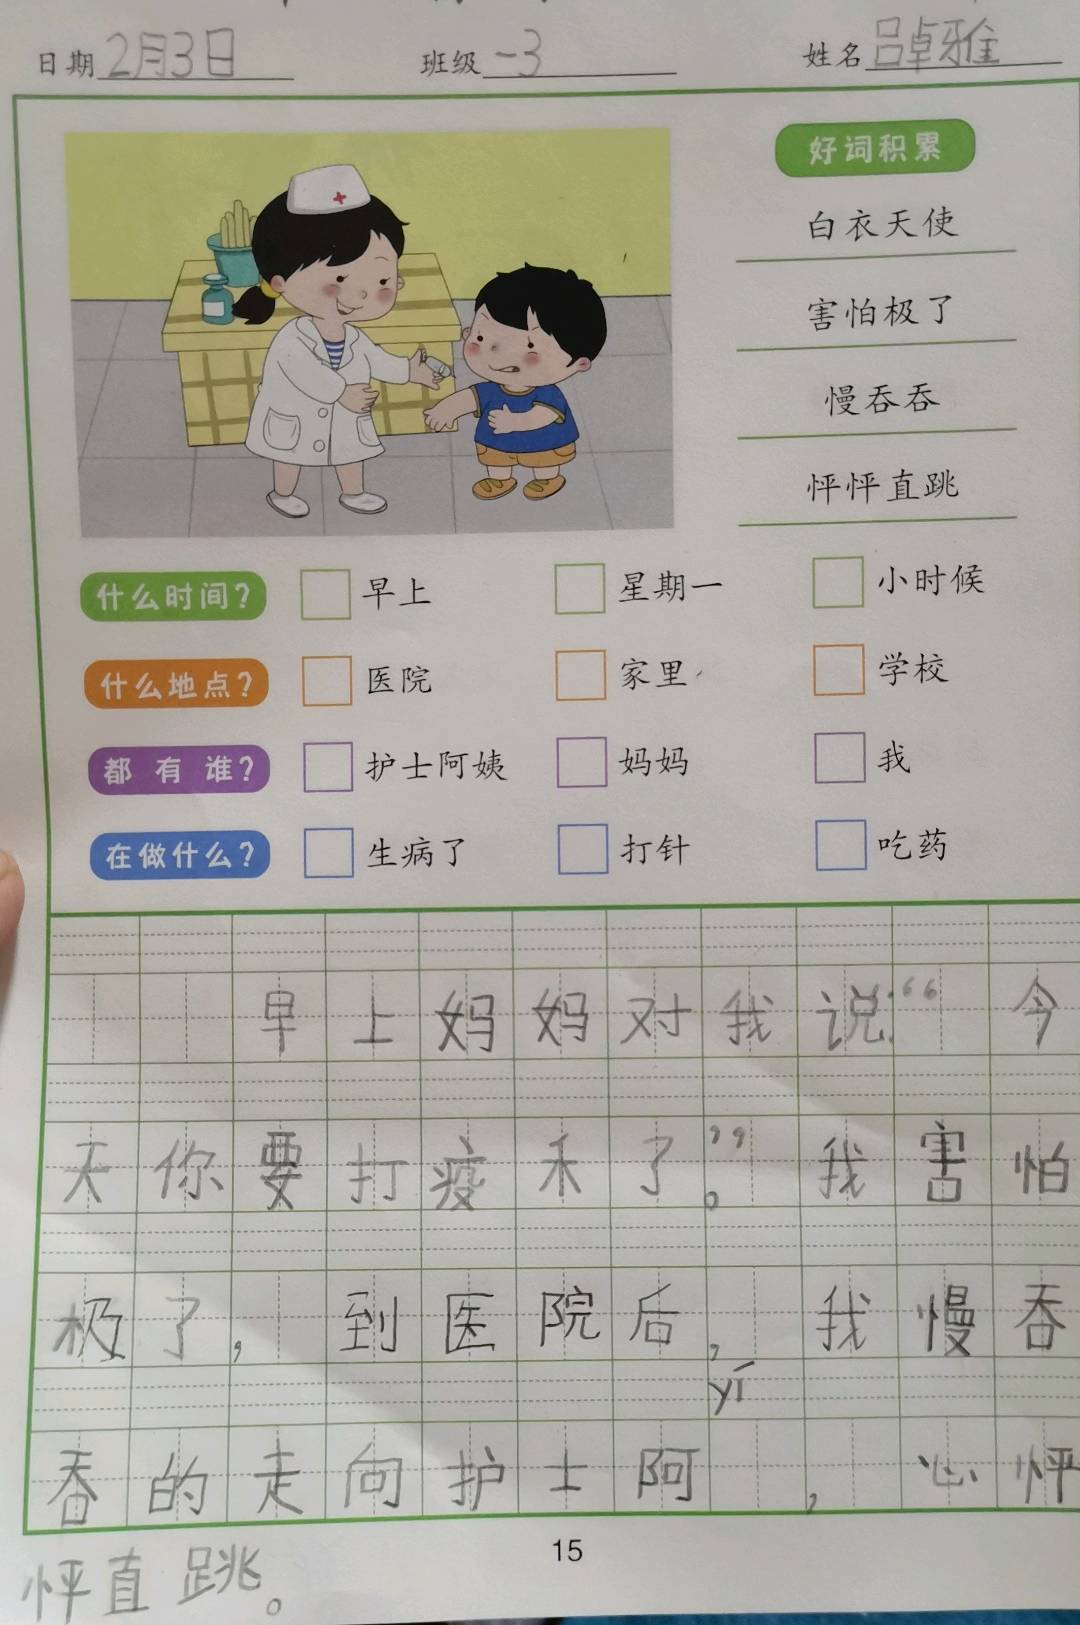 日期 2月3日 班级 一3 姓名 吕卓雅
好词积累
白衣天使
害怕极了
慢吞吞
怦怦直跳
什么时间? 早上 星期一 小时候
什么地点? 医院 家里 学校
都有谁? 护士阿姨 妈妈 我
在做什么? 生病了 打针 吃药
早上妈妈对我说:“今
天你要打疫禾了。”我害怕
极了,到医院后,我慢吞
yí
吞的走向护士阿,心怦
15
怦直跳。